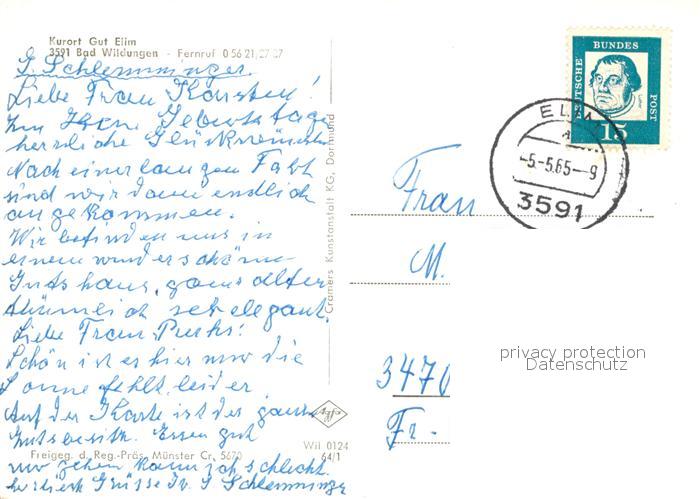 Kurort Gut Elim
3591 Bad Wildungen - Fernruf 0 56 21/27 27
G. Schlemminger.
Liebe Frau Karsten!
Zu Ihren Geburtstage
herzliche Glückwünsche
Nach einer langen Fahrt
sind wir dann endlich
angekommen.
Wir befinden uns in
einem wunderschönen
Gutshaus, ganz alter
tümlich sehr elegant.
Liebe Frau
Schön ist es hier nur die
Sonne fehlt leider
Auf der Karte ist der ganze
Gutsbesitz. Essen gut
nur gehen kann ich schlecht.
herzliche Grüsse Ihr G Schlemminger
Freigeg. d. Reg.-Präs. Münster Cr. 5670
Wil 0124
64/1
Cramers Kunstanstalt KG, Dortmund
Agfa
DEUTSCHE
BUNDES
POST
15
ELIM
-5.-5.65-9
3591
Frau
M.
3470
Fr.-
privacy protection
Datenschutz